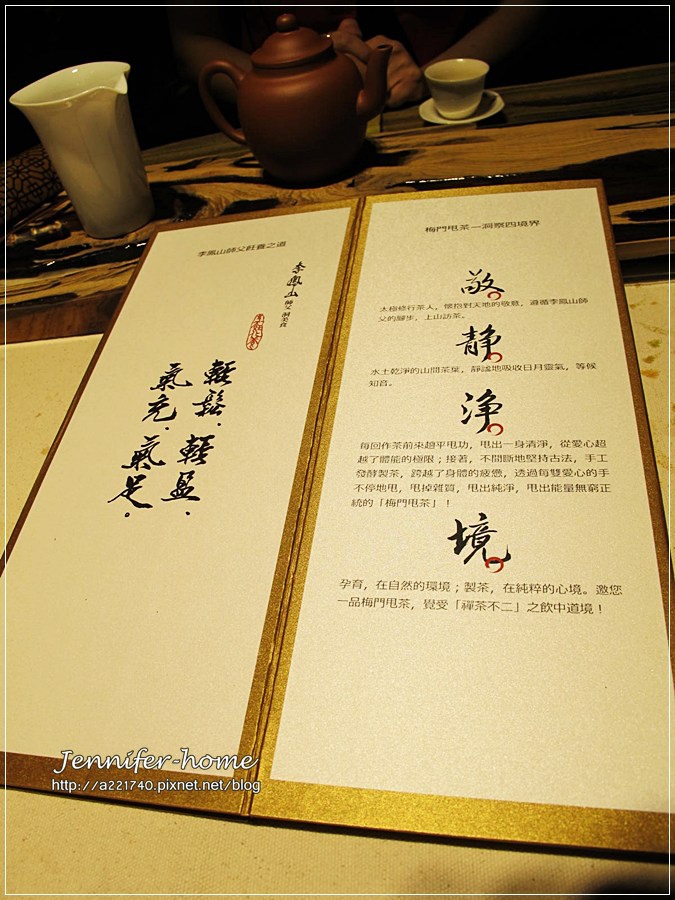 李鳳山師父飪養之道
李鳳山 師父 調美食
輕鬆、輕盈、
氣充、氣足。
梅門甩茶—洞察四境界
敬
太極修行茶人，懷抱對天地的敬意，遵循李鳳山師
父的腳步，上山訪茶。
靜
水土乾淨的山間茶葉，靜謐地吸收日月靈氣，等候
知音。
淨
每回作茶前來趟平甩功，甩出一身清淨，從愛心超
越了體能的極限；接著，不間斷地堅持古法，手工
發酵製茶，跨越了身體的疲憊，透過每雙愛心的手
不停地甩，甩掉雜質，甩出純淨，甩出能量無窮正
統的「梅門甩茶」！
境
孕育，在自然的環境；製茶，在純粹的心境。邀您
一品梅門甩茶，覺受「禪茶不二」之飲中道境！
Jennifer-home
http://a221740.pixnet.net/blog